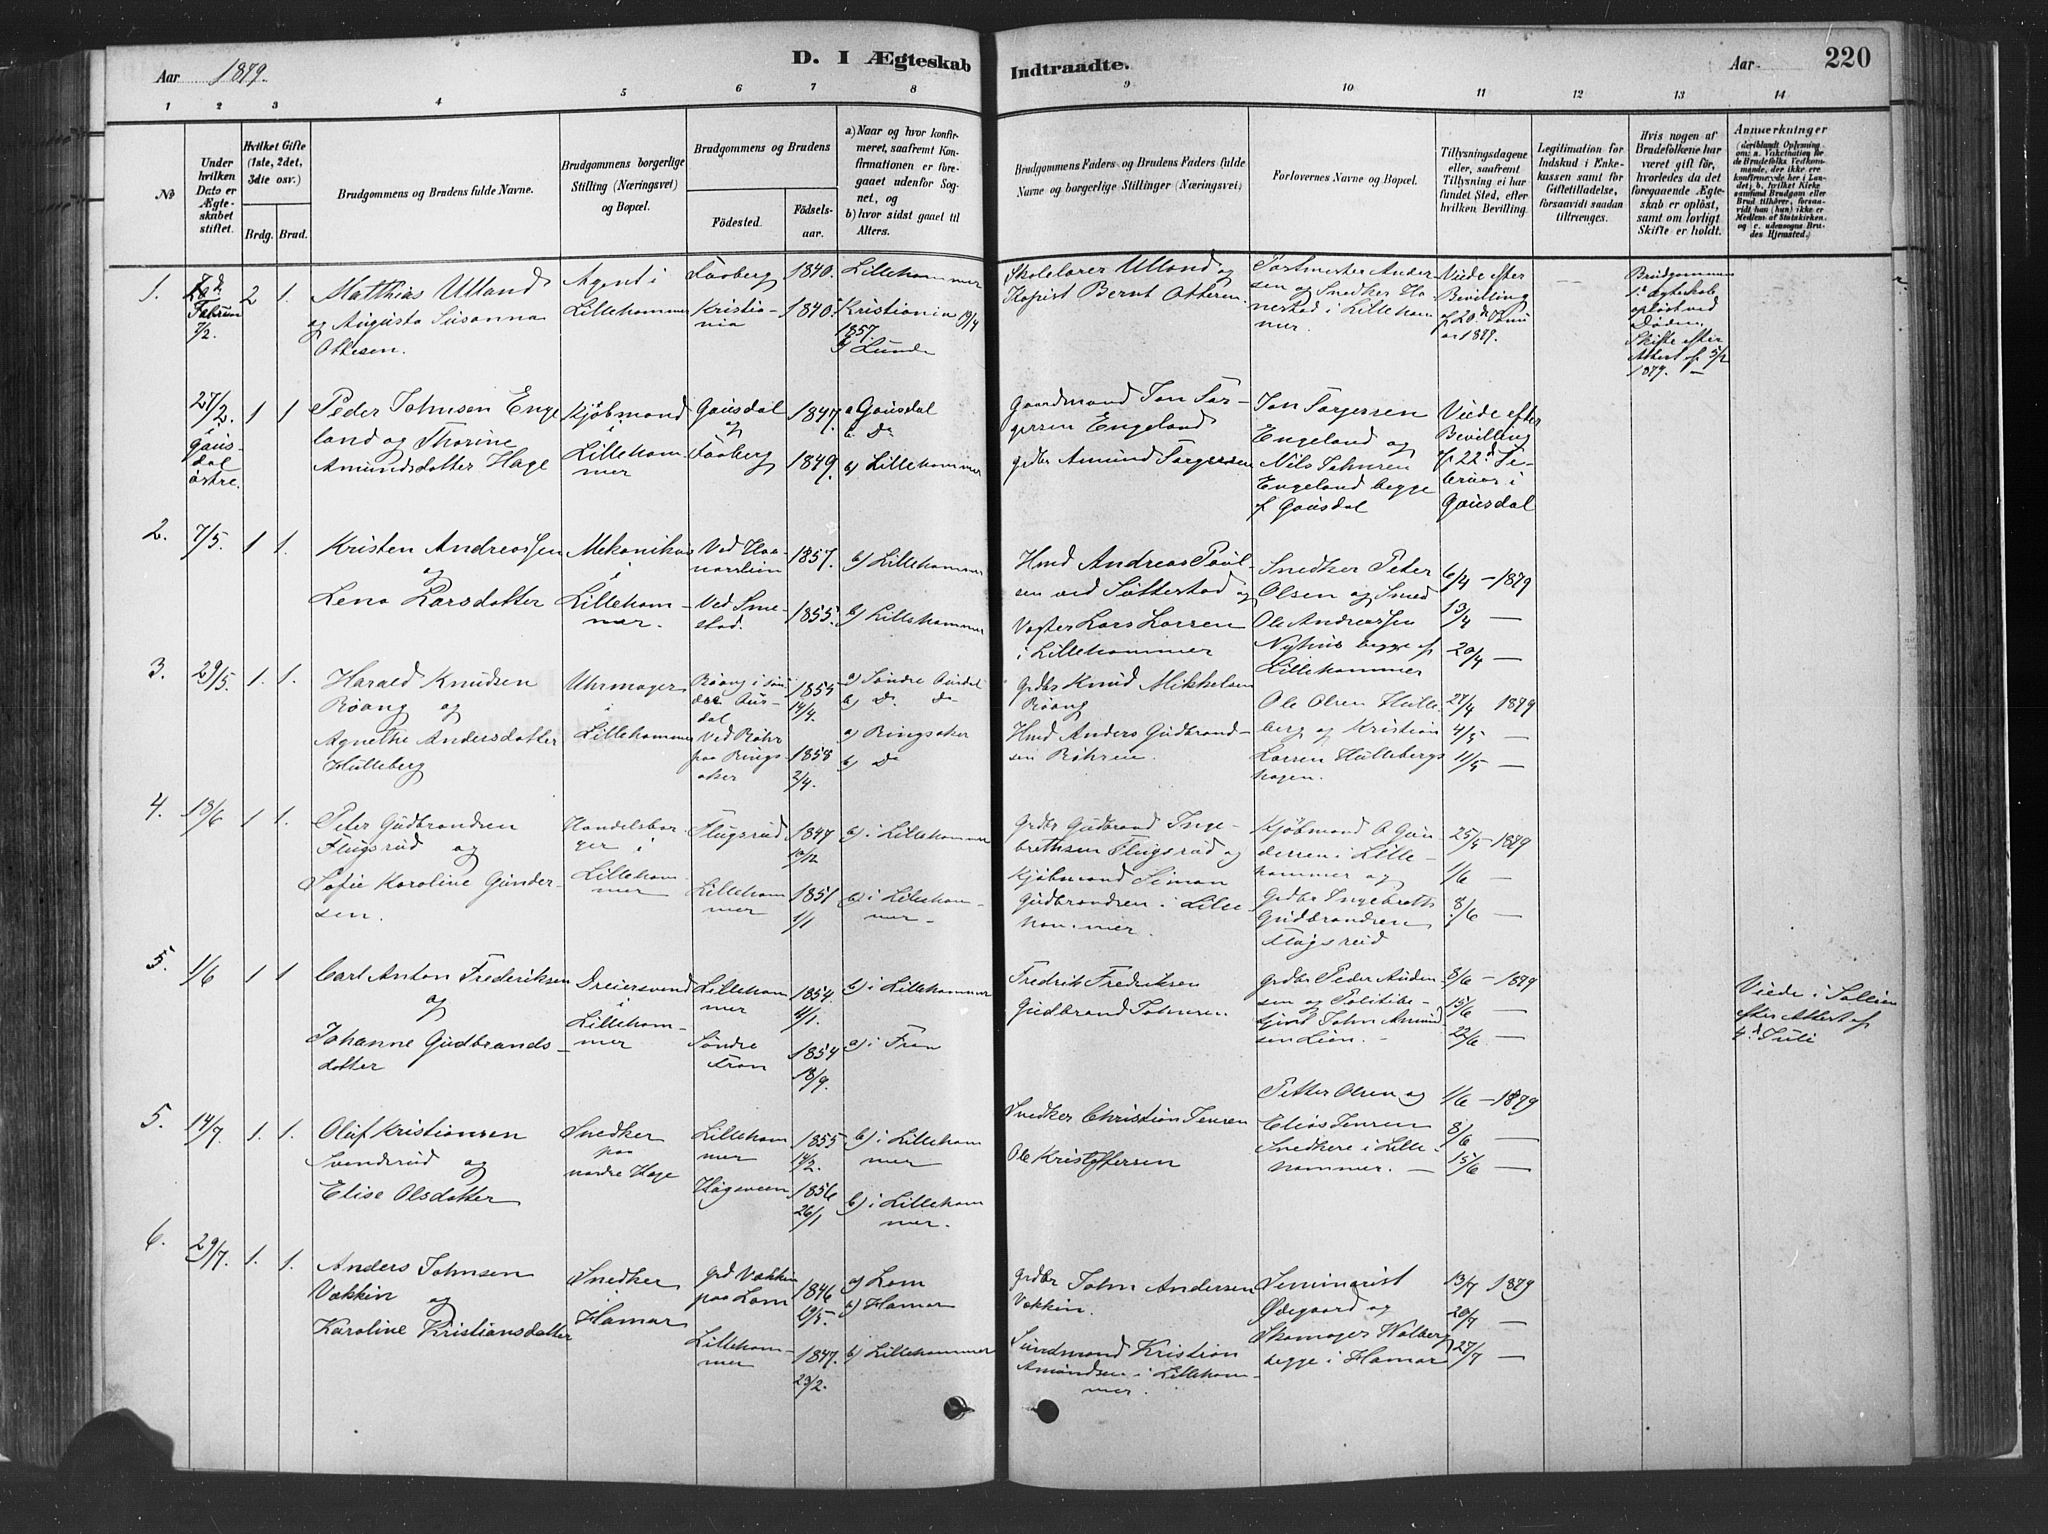 Aar 1879.
D. I Ægteskab Indtraadte.
Aar
220
1 2 3 4 5 6 7 8 9 10 11 12 13 14
No
Under hvilken Dato er Ægteskabet stiftet.
Hvilket Gifte (1ste, 2det, 3die osv.)
Brdg. Brud.
Brudgommens og Brudens fulde Navne.
Brudgommens borgerlige Stilling (Næringsvei) og Bopæl.
Brudgommens og Brudens
Fødested.
Fødselsaar.
a) Naar og hvor konfirmeret, saafremt Konfirmationen er foregaaet udenfor Sognet, og
b) hvor sidst gaaet til Alters.
Brudgommens Faders og Brudens Faders fulde Navne og borgerlige Stillinger (Næringsvei)
Forlovernes Navne og Bopæl.
Tillysningsdagene eller, saafremt Tillysning ei har fundet Sted, efter hvilken Bevilling.
Legitimation for Indskud i Enkekassen samt for Giftetilladelse, forsaavidt saadan tiltrænges.
Hvis nogen af Brudefolkene har været gift før, hvorledes da det foregaaende Ægteskab er opløst, samt om lovligt Skifte er holdt.
Anmerkninger
1. 7/2 2 1.
Matthias Ulland
og Augusta Susanna
Ottesen.
Agent i
Lillehammer
Faaberg 1840.
Kristiania 1840.
Lillehammer
Kristiania 19/4
1857.
b) Lunde
Skolelærer Ulland og
Kopist Bernt Ottesen.
Postmester Andersen
og Snedker
i Lillehammer.
Viede efter
Bevilling
af 20d
1879.
Brudgommens
1e ægteskab
opløst ved
Døden
Skifte efter
Attest af 5/2
1879. —
27/2. i Gausdal østre. 1 1
Peder Johnsen Engeland og Thorine
Amundsdatter Hage
Kjøbmand
i
Lillehammer
Gausdal 1847.
og
Faaberg 1849.
a Gausdal
b. Do
b) Lillehammer
Gaardmand Jon Torgersen Engeland
Grdbr Amund Torgersen
Jon Torgersen
Engeland og
Nils Johnsen
Engeland begge
af Gausdal
Viede efter
Bevilling
af 22d Februar i
Gausdal
2. 7/5. 1 1.
Kristen Andreassen
og
Lena Larsdatter
Mekanikus
i
Lillehammer.
1857.
Ved Smestad. 1855.
b) Lillehammer
b) Lillehammer
Hmd Andreas Poulsen ved Sutterstad og
Vogter Lars Larsen
i Lillehammer
Snedker Peter
Olsen og Smed
Ole Andreassen
Nyhus begge af
Lillehammer
6/4 — 1879
13/4 —
20/4 —
3. 29/5. 1. 1.
Harald Knudsen
Røang og
Agnethe Andersdatter
Hulleberg
Uhrmager
i
Lillehammer
Røang i søndre Ausdal
1855
14/4.
Ved Røhr
paa Ringsaker
1858
2/4.
a) Søndre Ausdal
b) Do do
a) Ringsaker
b) Do
Grdbr Knud Mikkelsen
Røang
Hmd Anders Gudbrandsen Røhren.
Ole Olsen Hulleberg og Kristian
Larsen Hullebergshagen.
27/4 1879
4/5 —
11/5 —
4. 18/6 1 1.
Peter Gudbrandsen
Flugsrud og
Sofie Karoline Gundersen.
Handelsborger i
Lillehammer
Flugsrud 1847
10/12
Lillehammer 1851
1/1
b) i Lillehammer
b) i Lillehammer.
Grdbr Gudbrand Ingebrethsen Flugsrud og
Kjøbmand Simon
Gudbrandsen i Lillehammer.
Kjøbmand O Gundersen i Lillehammer og
Grdbr Ingebreth
Gudbrandsen
Flugsrud
25/5 — 1879
1/6 —
8/6 —
5. 1/6 1 1
Carl Anton Frederiksen
og
Johanne Gudbrandsdatter
Dreiersvend
i
Lillehammer
Lillehammer 1854.
4/1.
Søndre
Fron 1854
18/9.
b) i Lillehammer
a) i Fron
Fredrik Fredriksen
Gudbrand Johnsen
Grdbr Peder Audensen og Politibetjent John Amundsen Lien.
8/6 — 1879
15/6 —
22/6 —
Viede i Sollien
efter Attest af
4d Juli
5. 14/7 1. 1.
Oluf Kristiansen
Svenderud og
Elise Olsdatter
Snedker
paa
nordre Hage
Lillehammer 1855
14/2.
Hågaveen 1856
26/1
b) i Lillehammer
b) i Lillehammer.
Snedker Christian Jensen
Ole Kristoffersen
Petter Olsen og
Elias Jensen
Snedkere i Lillehammer. —
1/6 — 1879
8/6 —
15/6 —
6. 29/7. 1. 1.
Anders Johnsen
Vækkin og
Karoline Kristiansdatter
Snedker
i
Hamar
Grd Vækkin
paa Lom 1846
19/5.
Lillehammer 1847.
23/2.
a) Lom
b) Hamar
b) Lillehammer
Grdbr John Andersen
Vækkin.
Kristian
Amundsen i Lillehammer.
Seminarist
Ødegaard og
Skomager Walberg
begge i Hamar
13/7 1879
20/7 —
27/7 —